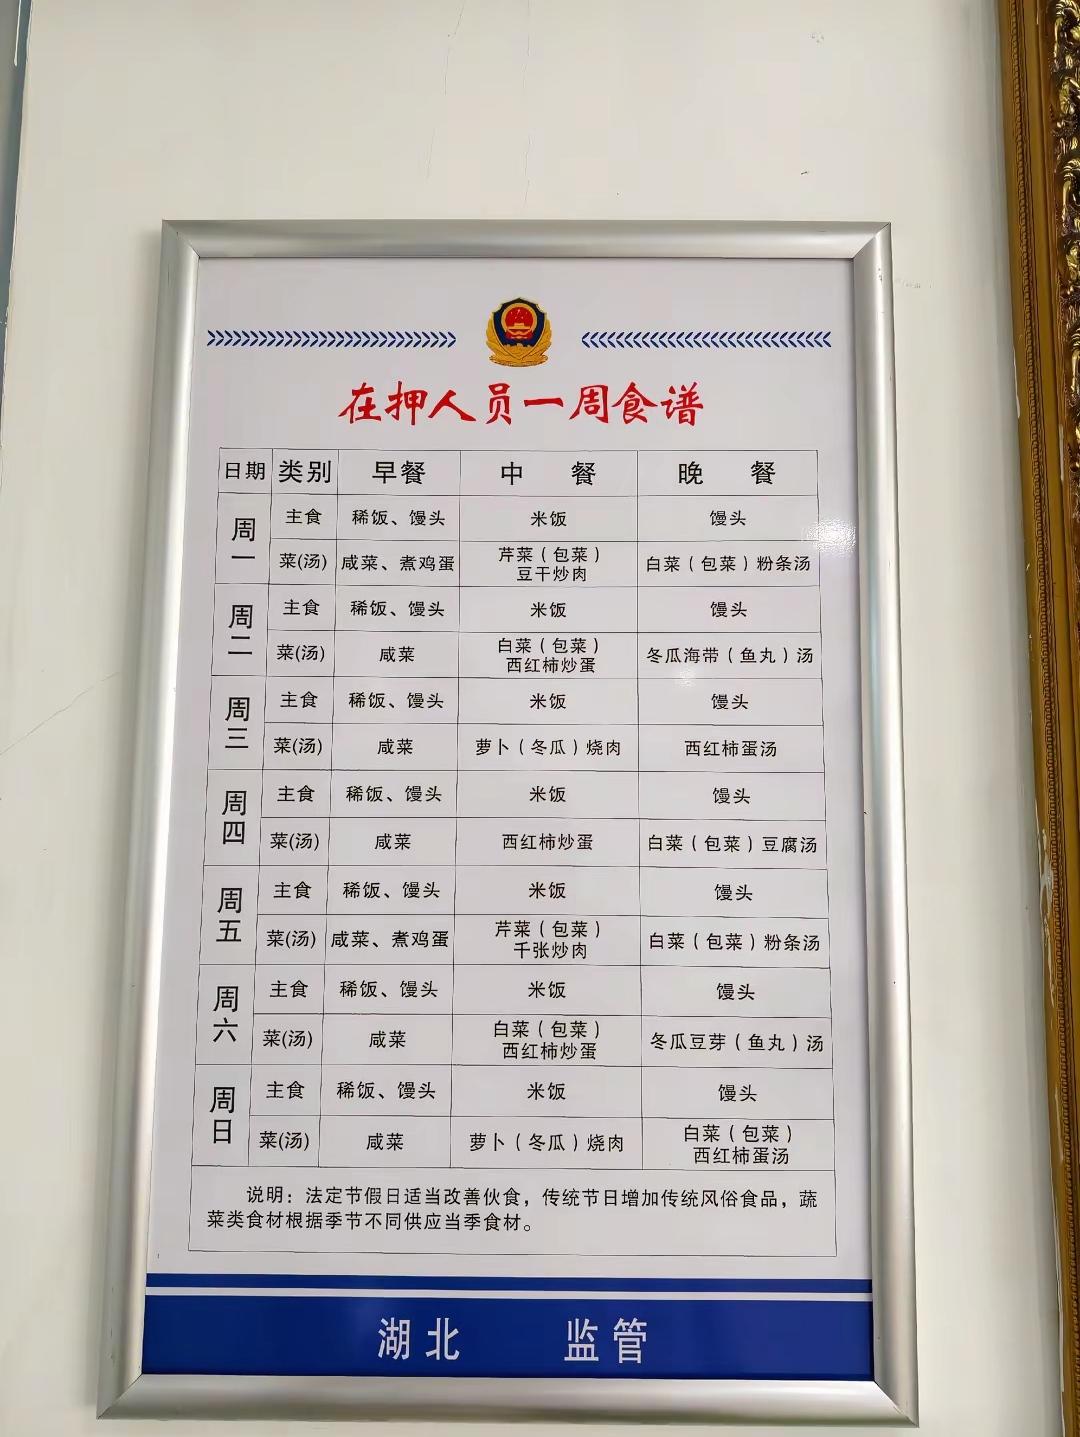 在押人员一周食谱
日期 类别 早餐 中 餐 晚 餐
周一 主食 稀饭、馒头 米饭 馒头
菜(汤) 咸菜、煮鸡蛋 芹菜（包菜）豆干炒肉 白菜（包菜）粉条汤
周二 主食 稀饭、馒头 米饭 馒头
菜(汤) 咸菜 白菜（包菜）西红柿炒蛋 冬瓜海带（鱼丸）汤
周三 主食 稀饭、馒头 米饭 馒头
菜(汤) 咸菜 萝卜（冬瓜）烧肉 西红柿蛋汤
周四 主食 稀饭、馒头 米饭 馒头
菜(汤) 咸菜 西红柿炒蛋 白菜（包菜）豆腐汤
周五 主食 稀饭、馒头 米饭 馒头
菜(汤) 咸菜、煮鸡蛋 芹菜（包菜）千张炒肉 白菜（包菜）粉条汤
周六 主食 稀饭、馒头 米饭 馒头
菜(汤) 咸菜 白菜（包菜）西红柿炒蛋 冬瓜豆芽（鱼丸）汤
周日 主食 稀饭、馒头 米饭 馒头
菜(汤) 咸菜 萝卜（冬瓜）烧肉 白菜（包菜）西红柿蛋汤
说明：法定节假日适当改善伙食，传统节日增加传统风俗食品，蔬
菜类食材根据季节不同供应当季食材。
湖北 监管